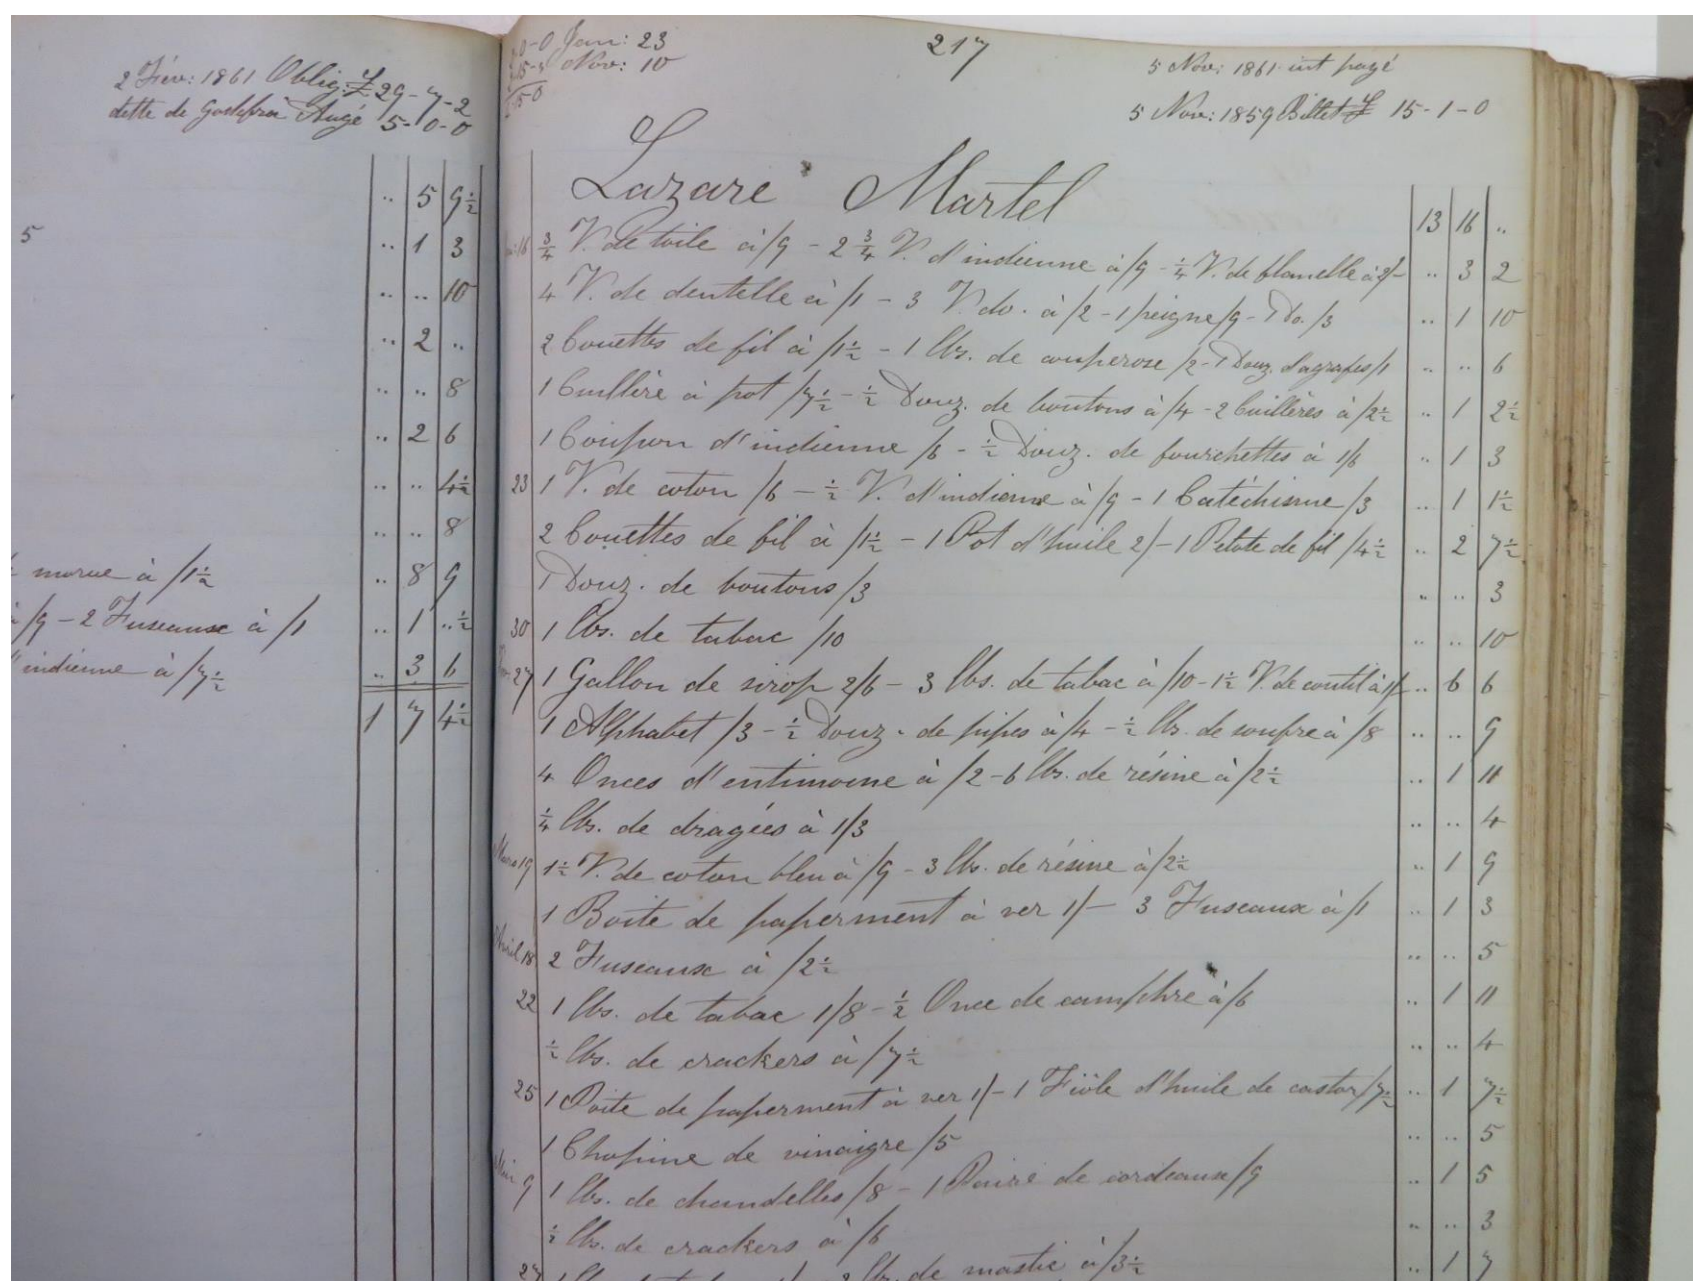 2 Fév: 1861 Oblig: £ 29-7-2
dette de Godefroi Augé 5-0-0
.. 5 9½
5
.. 1 3
.. .. 10
.. 2 ..
.. .. 8
.. 2 6
.. .. 4½
.. .. 8
morue à /1½ .. 8 9
à /9 - 2 Fuseaux à /1 .. 1 ..½
d'indienne à /7½ .. 3 6
1 7 4½
Jan: 23
Nov: 10
217
5 Nov: 1861 int payé
5 Nov: 1859 Billet £ 15-1-0
Lazare Martel
13 16 ..
16 ¾ V. de toile à /9 - 2¾ V. d'indienne à /9 - ¼ V. de flanelle à 2/- .. 3 2
4 V. de dentelle à /1 - 3 V. do. à /2 - 1 peigne /9 - 1 Do. /3 .. 1 10
2 Couettes de fil à /1½ - 1 lbs. de couperose /2 - 1 Douz. d'agrafes /1 .. .. 6
1 Cuillère à pot /7½ - ½ Douz. de boutons à /4 - 2 Cuillères à /2½ .. 1 2½
1 Coupon d'indienne /6 - ½ Douz. de fourchettes à 1/6 .. 1 3
23 1 V. de coton /6 - ½ V. d'indienne à /9 - 1 Catéchisme /3 .. 1 1½
2 Couettes de fil à /1½ - 1 Pot d'huile 2/- 1 Pelote de fil /4½ .. 2 7½
1 Douz. de boutons /3 .. .. 3
30 1 lbs. de tabac /10 .. .. 10
27 1 Gallon de sirop 2/6 - 3 lbs. de tabac à /10 - 1½ V. de coutil à 1/- .. 6 6
1 Alphabet /3 - ½ Douz. de pipes à /4 - ½ lbs. de soufre à /8 .. .. 9
4 Onces d'entimoine à /2 - 6 lbs. de résine à /2½ .. 1 11
¼ lbs. de dragées à 1/3 .. .. 4
Mars 19 1½ V. de coton bleu à /9 - 3 lbs. de résine à /2½ .. 1 9
1 Boite de paperment à ver 1/- 3 Fuseaux à /1 .. 1 3
Avril 18 2 Fuseaux à /2½ .. .. 5
22 1 lbs. de tabac 1/8 - ½ Once de camphre à /6 .. 1 11
½ lbs. de crackers à /7½ .. .. 4
25 1 Boite de paperment à ver 1/- 1 Fiôle d'huile de castor /7½ .. 1 7½
1 Chopine de vinaigre /5 .. .. 5
Mai 9 1 lbs. de chandelles /8 - 1 Paire de cordeaux /9 .. 1 5
½ lbs. de crackers à /6 .. .. 3
27 de mastic à /3½ .. 1 7